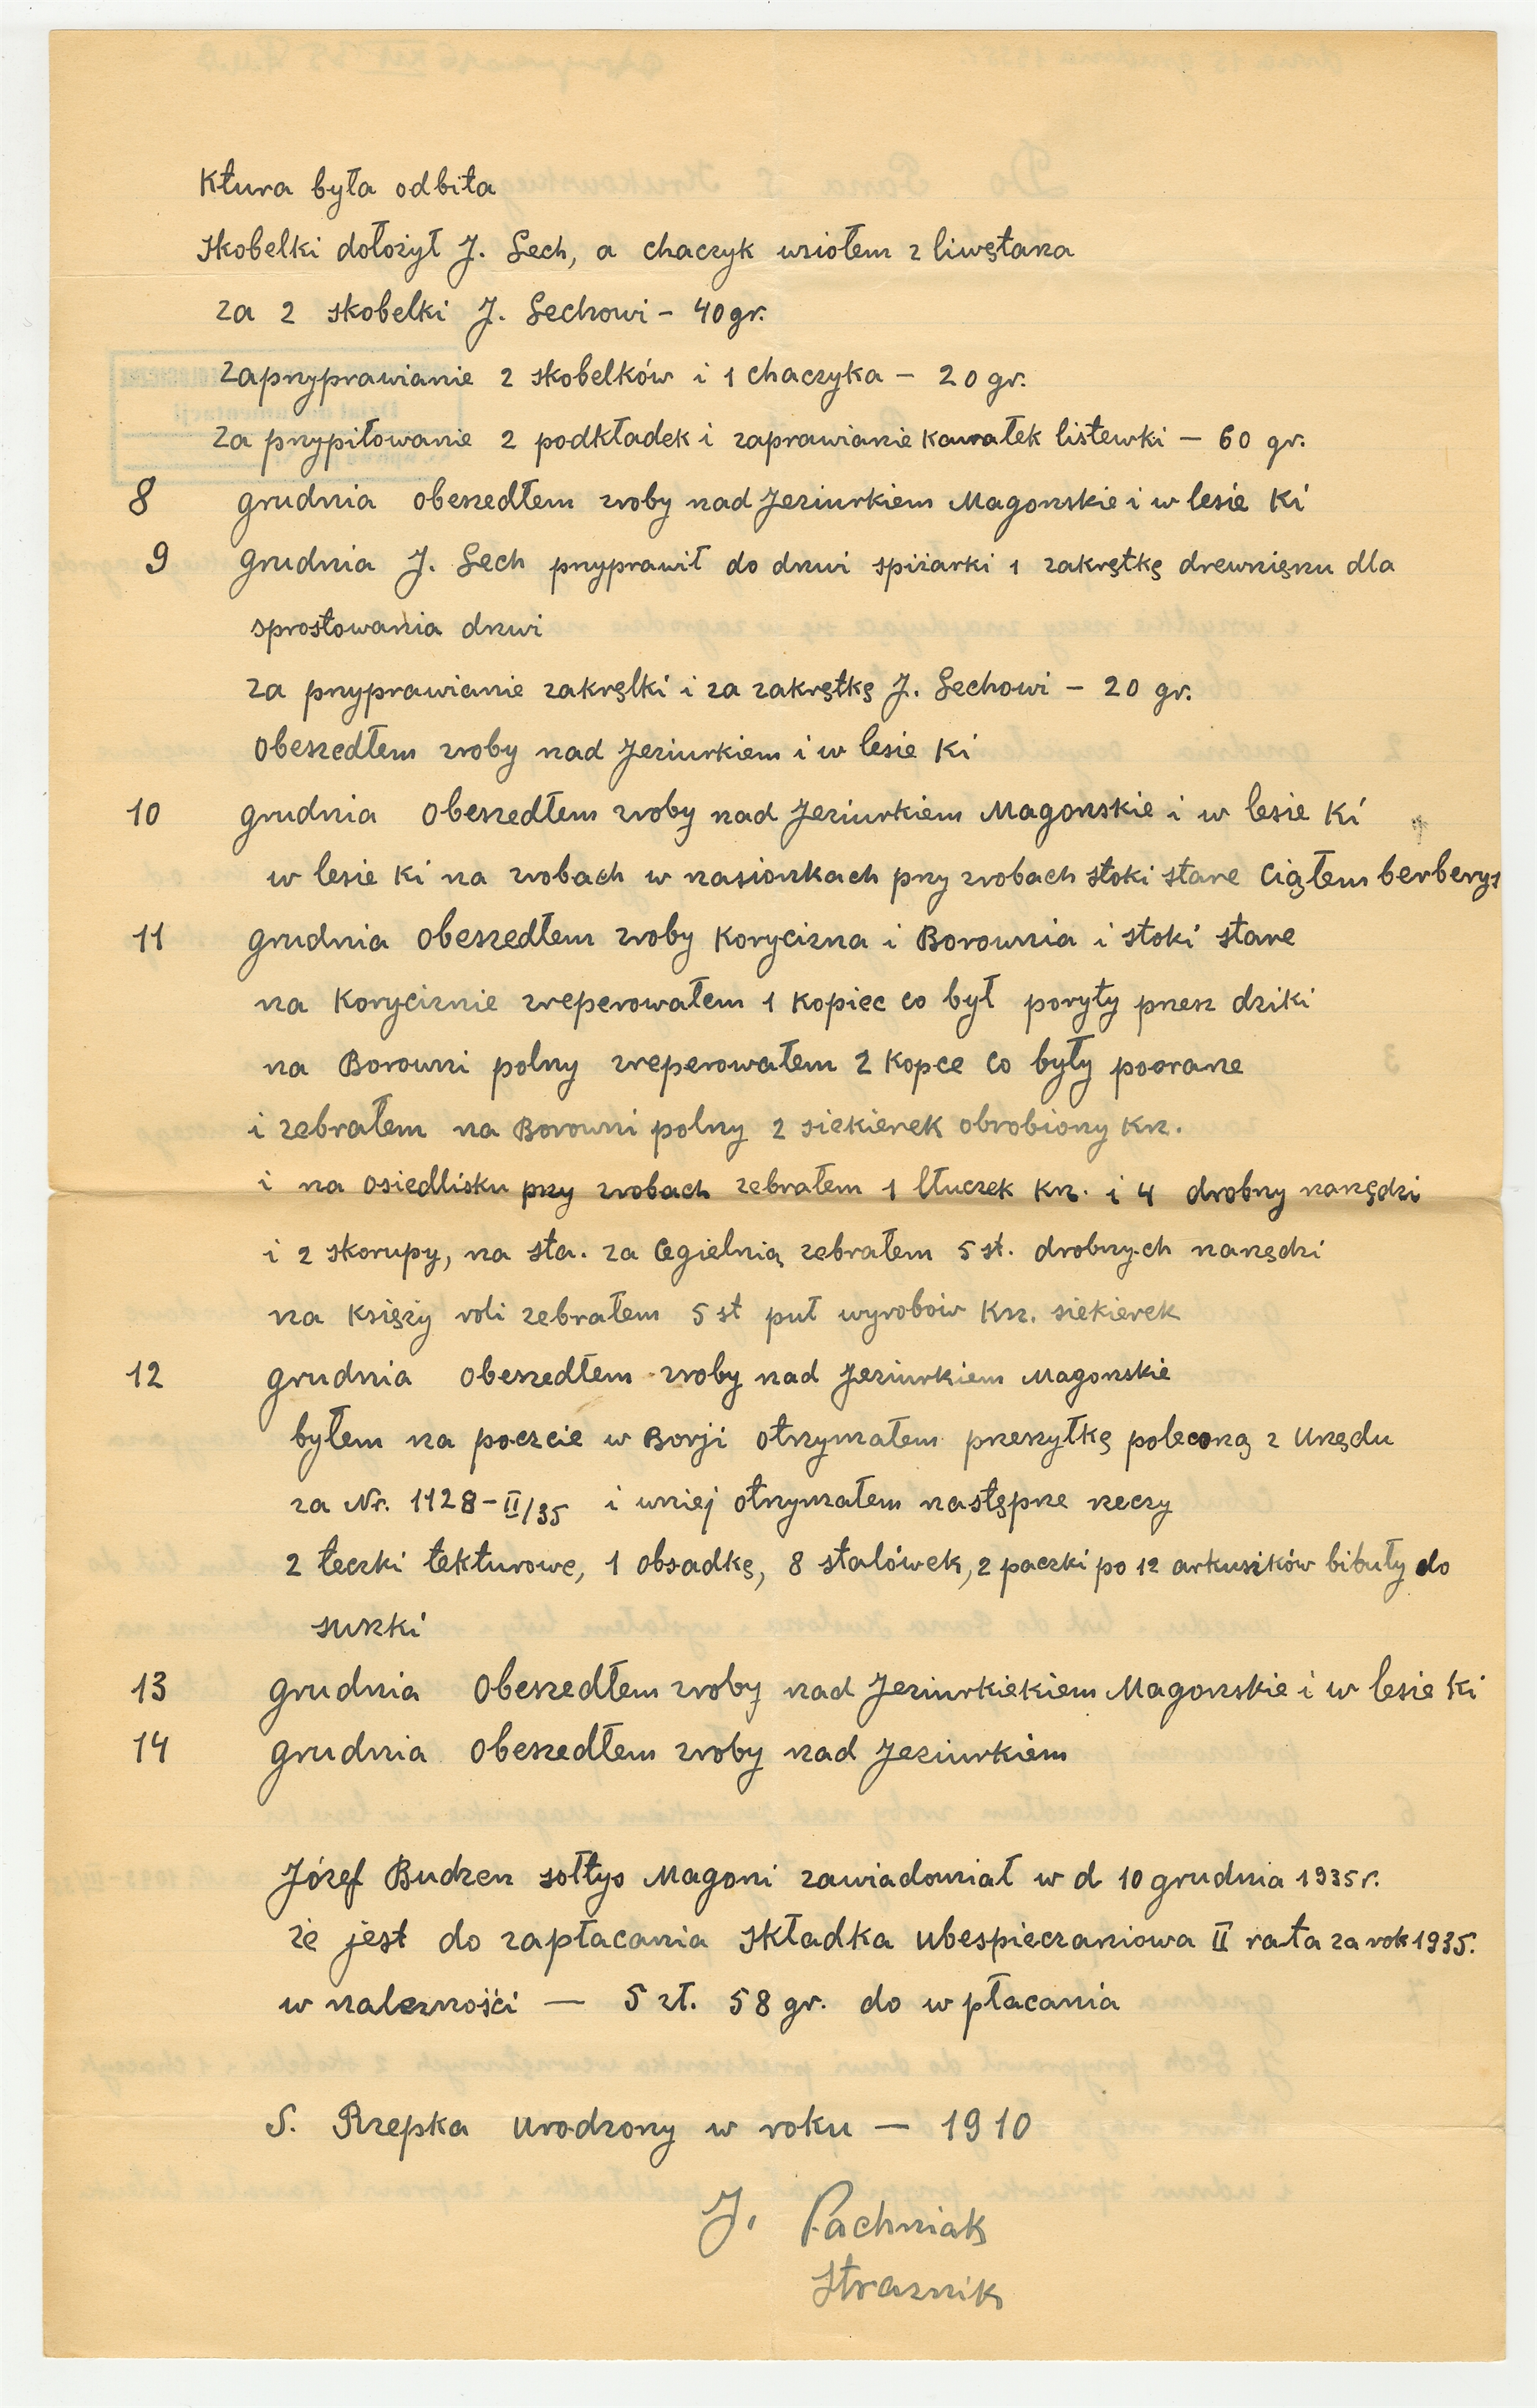 Ktura była odbita
skobelki dołożył J. Lech, a chaczyk wziołem z liwętaza
za 2 skobelki J. Lechowi – 40 gr.
zaprzyprawianie 2 skobelków i 1 chaczyka – 20 gr.
za przypiłowanie 2 podkładek i zaprawianie kawałek listewki – 60 gr.
8 grudnia obeszedłem zroby nad Jeziurkiem Magonskie i w lesie Ki
9 grudnia J. Lech przyprawił do drzwi spiżarki 1 zakrętkę drewnięnu dla
sprostowania drzwi
za przyprawianie zakrętki i za zakrętkę J. Lechowi – 20 gr.
Obeszedłem zroby nad Jeziurkiem i w lesie Ki
10 grudnia Obeszedłem zroby nad Jeziurkiem Magonskie i w lesie Ki
w lesie Ki na zrobach w zasionkach przy zrobach stoki stare Ciąłem berberys
11 grudnia Obeszedłem zroby Korycizna i Borownia i stoki stare
na Koryciznie zreperowałem 1 Kopiec co był poryty przez dziki
na Borowni polny zreperowałem 2 Kopce co były poorane
i zebrałem na Borowni polny 2 siekierek obrobiony Krz.
i na osiedlisku przy zrobach zebrałem 1 tłuczek Krz. i 4 drobny narzędzi
i 2 skorupy, na sta. za Cegielnią zebrałem 5 st. drobnych narzędzi
na Księży roli zebrałem 5 st puł wyrobów Krz. siekierek
12 grudnia obeszedłem zroby nad Jeziurkiem Magonskie
byłem na poczcie w Borji otrzymałem przesyłkę poleconą z Urzędu
za Nr. 1128-II/35 i wniej otrzymałem następne rzeczy
2 teczki tekturowe, 1 obsadkę, 8 stalówek, 2 paczki po 12 arkuszików bibuły do
suszki
13 grudnia Obeszedłem zroby nad Jeziurkiekiem Magonskie i w lesie Ki
14 grudnia Obeszedłem zroby nad Jeziurkiem
Józef Budzen sołtys Magoni zawiadomiał w d 10 grudnia 1935 r.
że jest do zapłacania składka ubespieczaniowa II rata za rok 1935.
w nalezności — 5 zł. 58 gr. do wpłacania
S. Rzepka urodzony w roku — 1910
J. Pachniak
Straznik